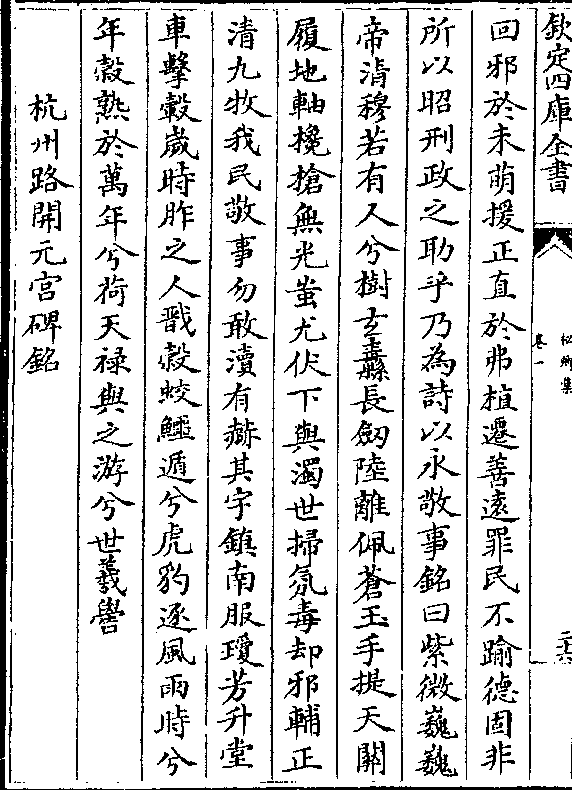 欽定四庫全書
松鄉集
卷一
二十六
回邪於未萌援正直於弗植遷善遠罪民不踰德固非
所以昭刑政之助乎乃為詩以永敬事銘曰紫微巍巍
帝清穆若有人兮樹玄纛長劔陸離佩蒼玉手提天關
履地軸欃槍無光蚩尤伏下與濁世掃氛毒却邪輔正
清九牧我民敬事勿敢瀆有赫其宇鎮南服瓊芳升堂
車擊轂歲時胙之人戩穀蛟鱷遁兮虎豹逐風雨時兮
年穀熟於萬年兮荷天祿與之游兮世羲嚳
杭州路開元宫碑銘